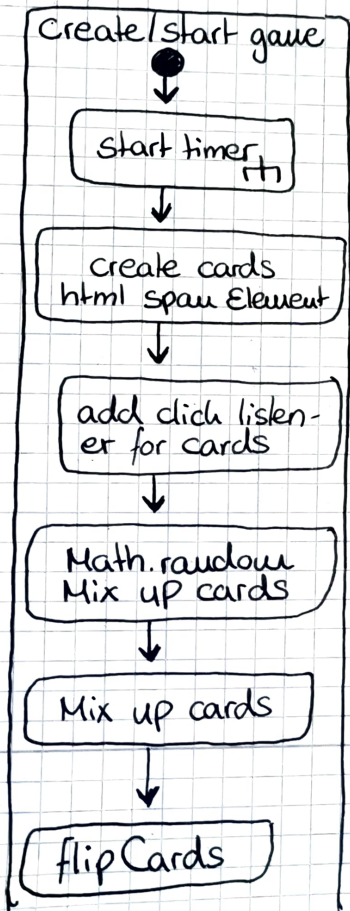 create/start game
start timer
create cards
html span Element
add click listen-
er for cards
Math.random
Mix up cards
Mix up cards
flipCards